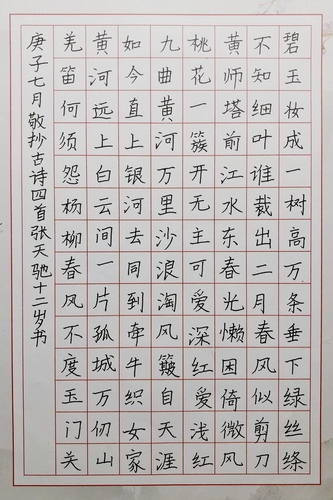 碧玉妆成一树高万条垂下绿丝绦
不知细叶谁裁出二月春风似剪刀
黄师塔前江水东春光懒困倚微风
桃花一簇开无主可爱深红爱浅红
九曲黄河万里沙浪淘风簸自天涯
如今直上银河去同到牵牛织女家
黄河远上白云间一片孤城万仞山
羌笛何须怨杨柳春风不度玉门关
庚子七月敬抄古诗四首张天驰十二岁书